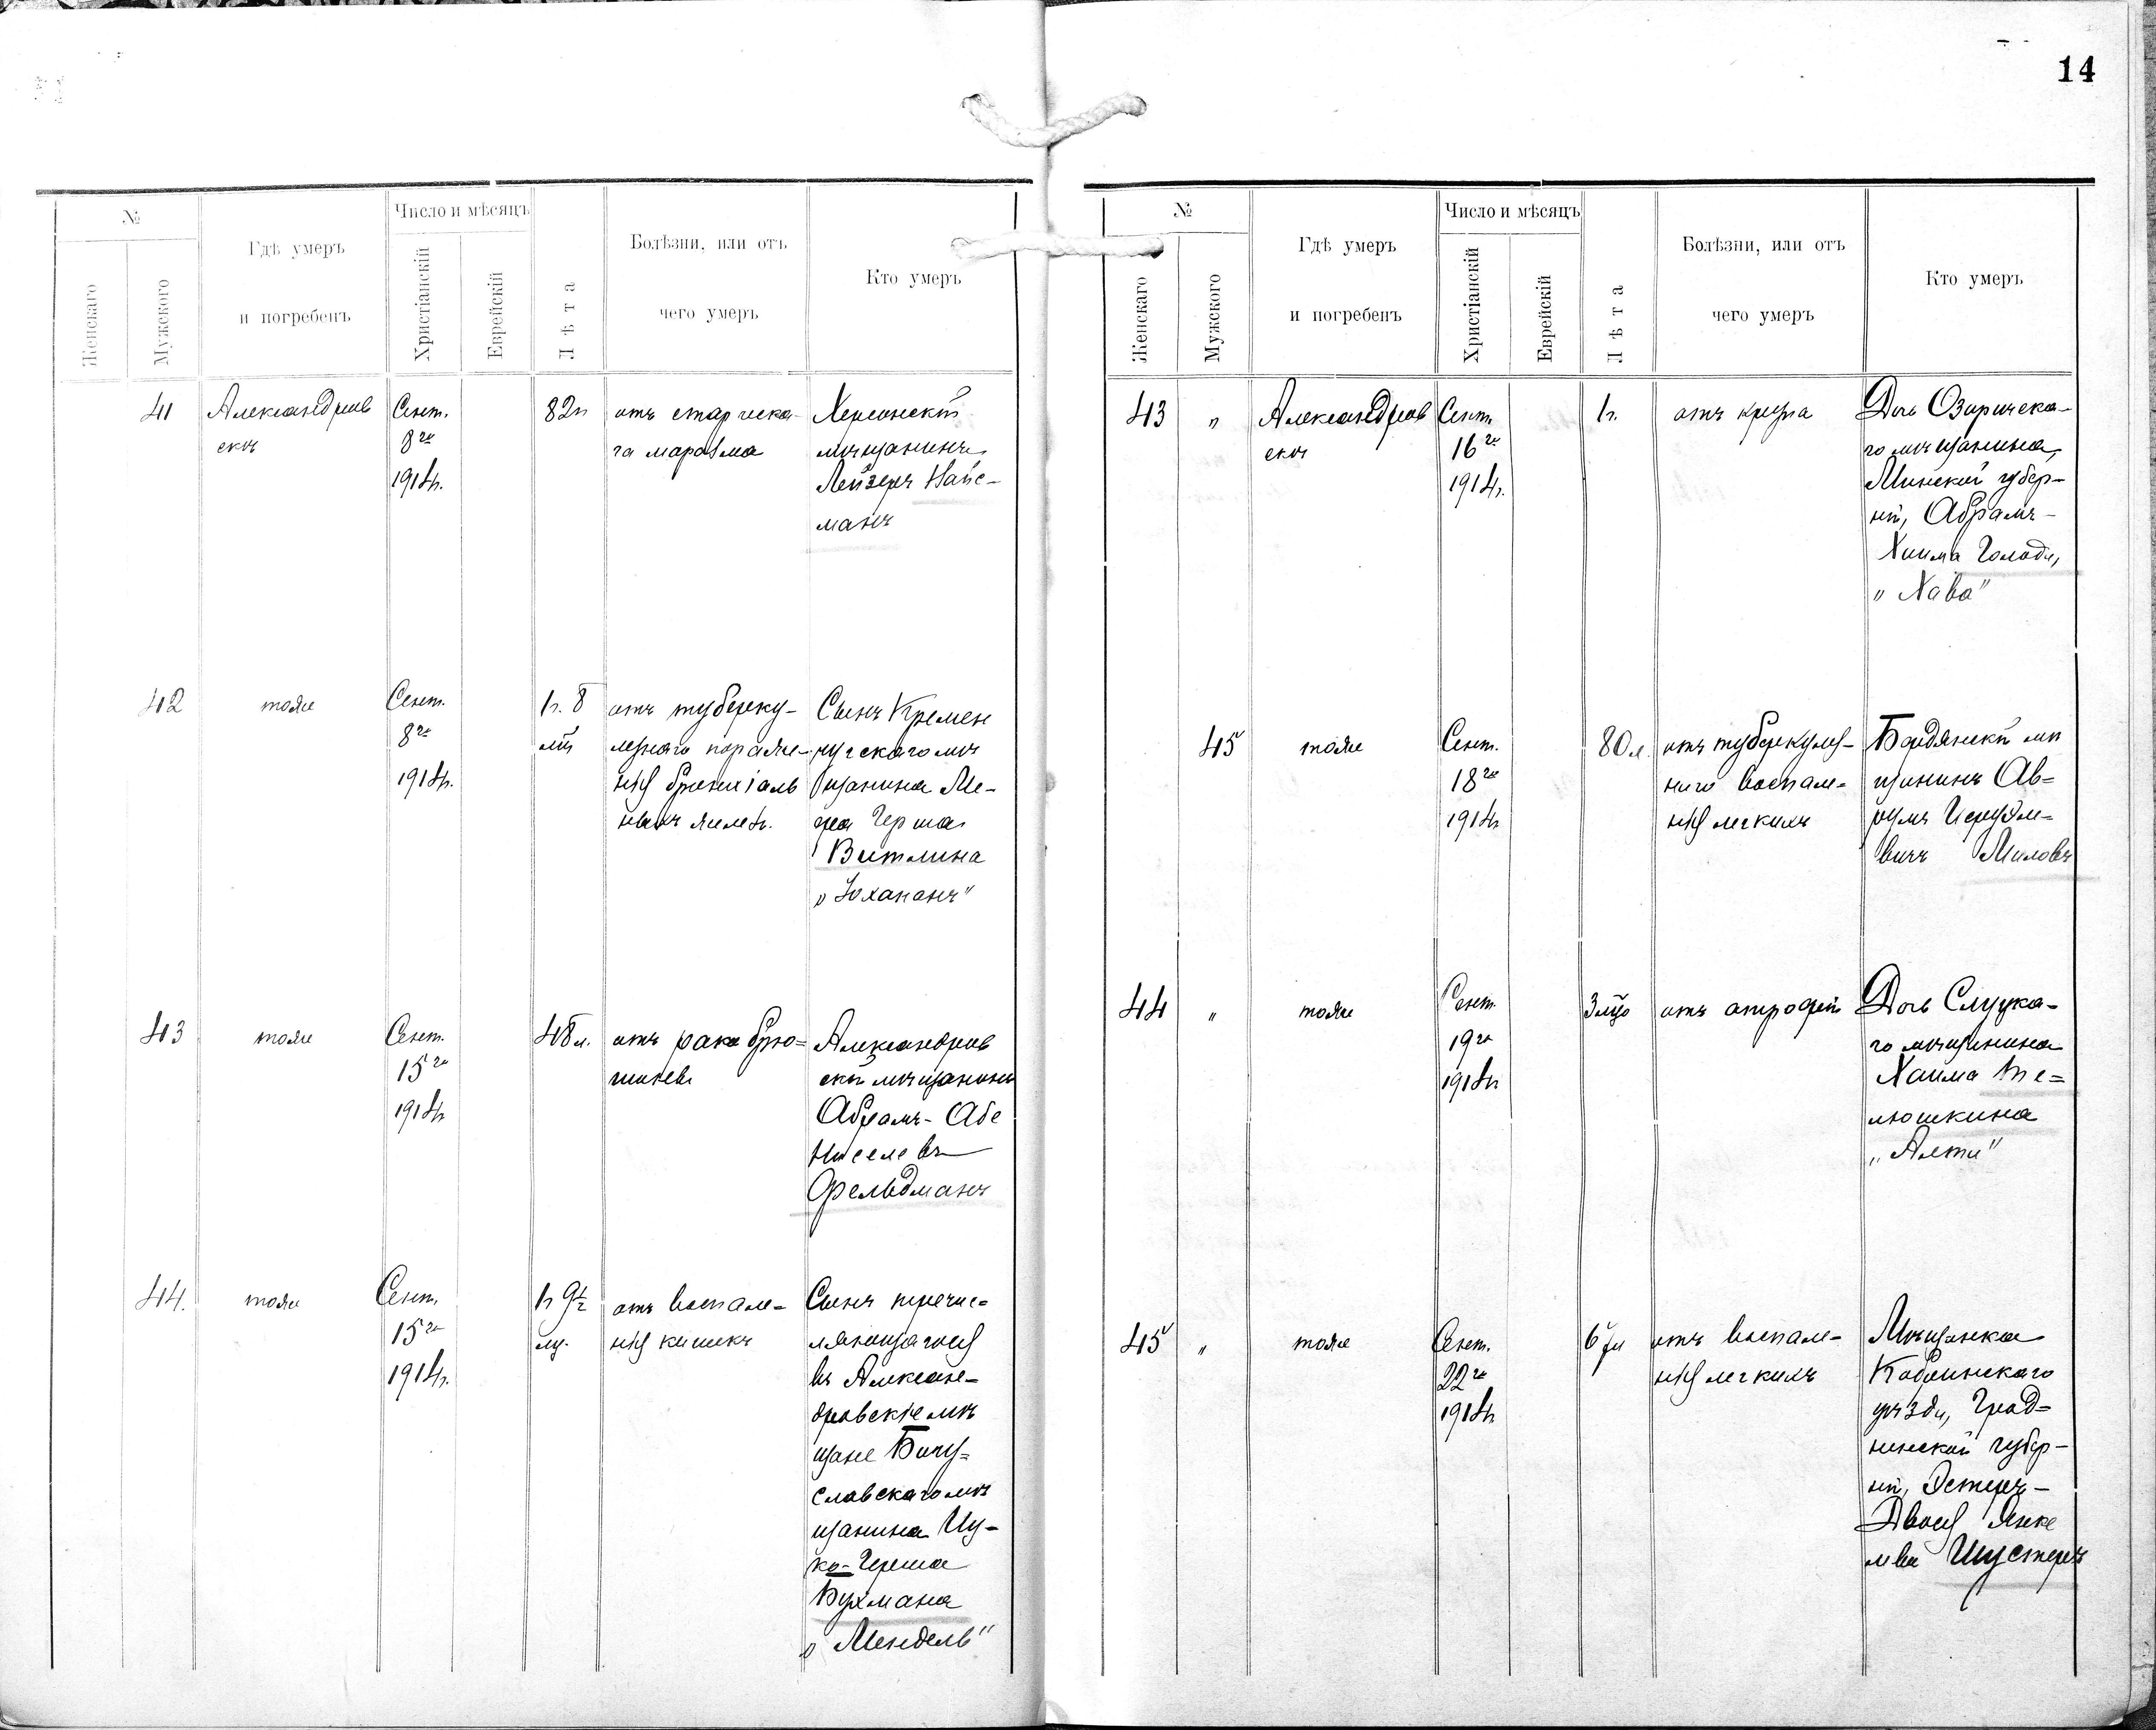 14
№
Женскаго
Мужского
Гдѣ умеръ
и погребенъ
Число и мѣсяцъ
Христіанскій
Еврейскій
Лѣта
Болѣзни, или отъ
чего умеръ
Кто умеръ
41
Александров
скѣ
Сент.
8го
1914г.
82л
отъ старческа-
го маразма
Херсонскій
мѣщанинъ
Лейзеръ Найс-
манъ
42
тоже
Сент.
8го
1914г.
1г. 8
мц
отъ туберку-
лезнаго пораже-
нія бронхіаль
ныхъ желез.
Сынъ Кремен
чугскаго мѣ
щанина Ме-
ера Герша
Витлина
„Юхананъ"
43
тоже
Сент.
15го
1914г
48л.
отъ рака брю-
шины
Александров
скій мѣщанинъ
Абрамъ-Абе
Киселевъ
Фельдманъ
44.
тоже
Сент.
15го
1914г.
1г 9½
мц.
отъ воспале-
нія кишекъ
Сынъ перечис-
ляющагося
въ Алексан-
дровскіе мѣ
щане Богу-
славскаго мѣ
щанина Иц-
ко-Герша
Бухмана
„Мендель"
№
Женскаго
Мужского
Гдѣ умеръ
и погребенъ
Число и мѣсяцъ
Христіанскій
Еврейскій
Лѣта
Болѣзни, или отъ
чего умеръ
Кто умеръ
43
"
Александров
скѣ
Сент.
16го
1914г.
1г.
отъ крупа
Дочь Озаричска-
го мѣщанина,
Минской губер-
ніи, Абрамъ-
Хаима Голода,
„Хава"
45
тоже
Сент.
18го
1914г
80л.
отъ туберкулез-
наго воспале-
нія легкихъ
Бердянскій мѣ
щанинъ Ав-
румъ
вичъ Миловъ
44
"
тоже
Сент.
19го
1914г
3 мцо
отъ атрофіи
Дочь Слуцка-
го мѣщанина
Хаима Те-
люшкина
„Алти"
45
"
тоже
Сент.
22го
1914г
отъ воспале-
нія легкихъ
Мѣщанка
Кобринскаго
уѣзда, Грод-
ненской губер-
ніи, Эстеръ-
Двося Янке
лева Шустеръ